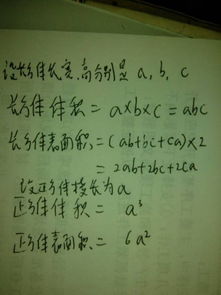 设长方体长、宽、高分别是 a, b, c
长方体体积 = a×b×c = abc
长方体表面积 = (ab+bc+ca)×2
= 2ab+2bc+2ca
设正方体棱长为a
正方体体积 = a³
正方体表面积 = 6a²